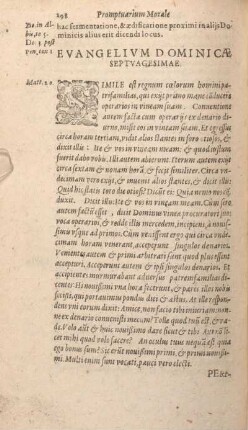 298 Promptuarium Morale
hac fermentatione, & ædificatione proximi in alijs Do-
minicis alius erit dicendi locus.
EVANGELIVM DOMINICÆ
SEPTVAGESIMAE.
Matt. 20.
SIMILE est regnum cælorum homini pa-
trifamilias, qui exijt primo mane conducere
operarios in vineam suam. Conuentione
autem facta cum operarijs ex denario di-
urno, misit eos in vineam suam. Et egressus
circa horam tertiam, vidit alios stantes in foro otiosos, &
dixit illis: Ite & vos in vineam meam: & quod iustum
fuerit dabo vobis. Illi autem abierunt. Iterum autem exijt
circa sextam & nonam horã, & fecit similiter. Circa vn-
decimam vero exijt, & inuenit alios stantes, & dicit illis:
Quid hic statis tota die otiosi? Dicũt ei: Quia nemo nos cõ-
duxit. Dicit illis: Ite & vos in vineam meam. Cùm sero
autem factũ esset, dicit Dominus vineæ procuratori suo:
voca operarios, & redde illis mercedem, incipiens, à nouis-
simis vsque ad primos. Cùm venissent ergo qui circa vnde-
cimam horam venerant, acceperunt singulos denarios.
Venientes autem & primi arbitrati sunt quod plus essent
accepturi. Acceperunt autem & ipsi singulos denarios. Et
accipientes murmurabant aduersus patremfamilias di-
centes: Hi nouissimi vna hora fecerunt, & pares illos nobis
fecisti, qui portauimus pondus diei & æstus. At ille respon-
dens vni eorum dixit: Amice, non facio tibi iniuriam: non-
ne ex denario conuenisti mecum? Tolle quod tuũ est, & va-
de. Volo aũt & huic nouissimo dare sicut & tibi. Aut nõ li-
cet mihi quod volo facere? An oculus tuus nequã est, quia
ego bonus sum? Sic erũt nouissimi primi, & primi nouissi-
mi. Multi enim sunt vocati, pauci vero electi.